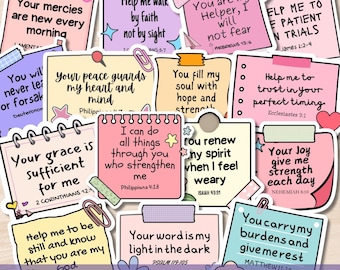 Your mercies
are new every
morning
Help me walk
by faith
not by sight
You are my
Helper, I
will not
fear
HEBREWS 13:6
HELP ME TO
BE PATIENT
IN TRIALS
JAMES 1:2-4
You will
never leave
or forsake
Your peace guards
my heart and
mind
Philippians 4:7
You fill my
soul with
hope and
strength
Help me to
trust in your
perfect timing
Ecclesiastes 3:1
Your grace is
sufficient
for me
2 CORINTHIANS 12:9
I can do
all things
through you
who strengthen
me
Philippians 4:13
You renew
my spirit
when I feel
weary
ISAIAH 40:31
Your Joy
give me
strength
each day
NEHEMIAH 8:10
Help me to be
still and know
that you are my
God
Your word is my
light in the dark
PSALM 119:105
You carry my
burdens and
give me rest